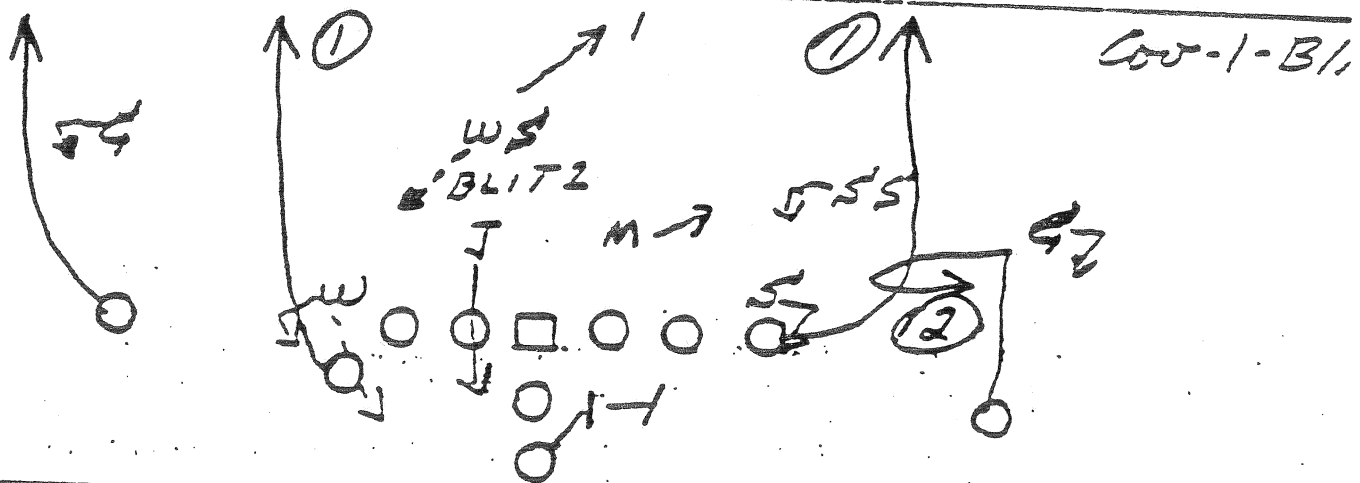 1 1 1 Cov-1-Bli
C
WS
BLITZ
SS
J M C
W S
2